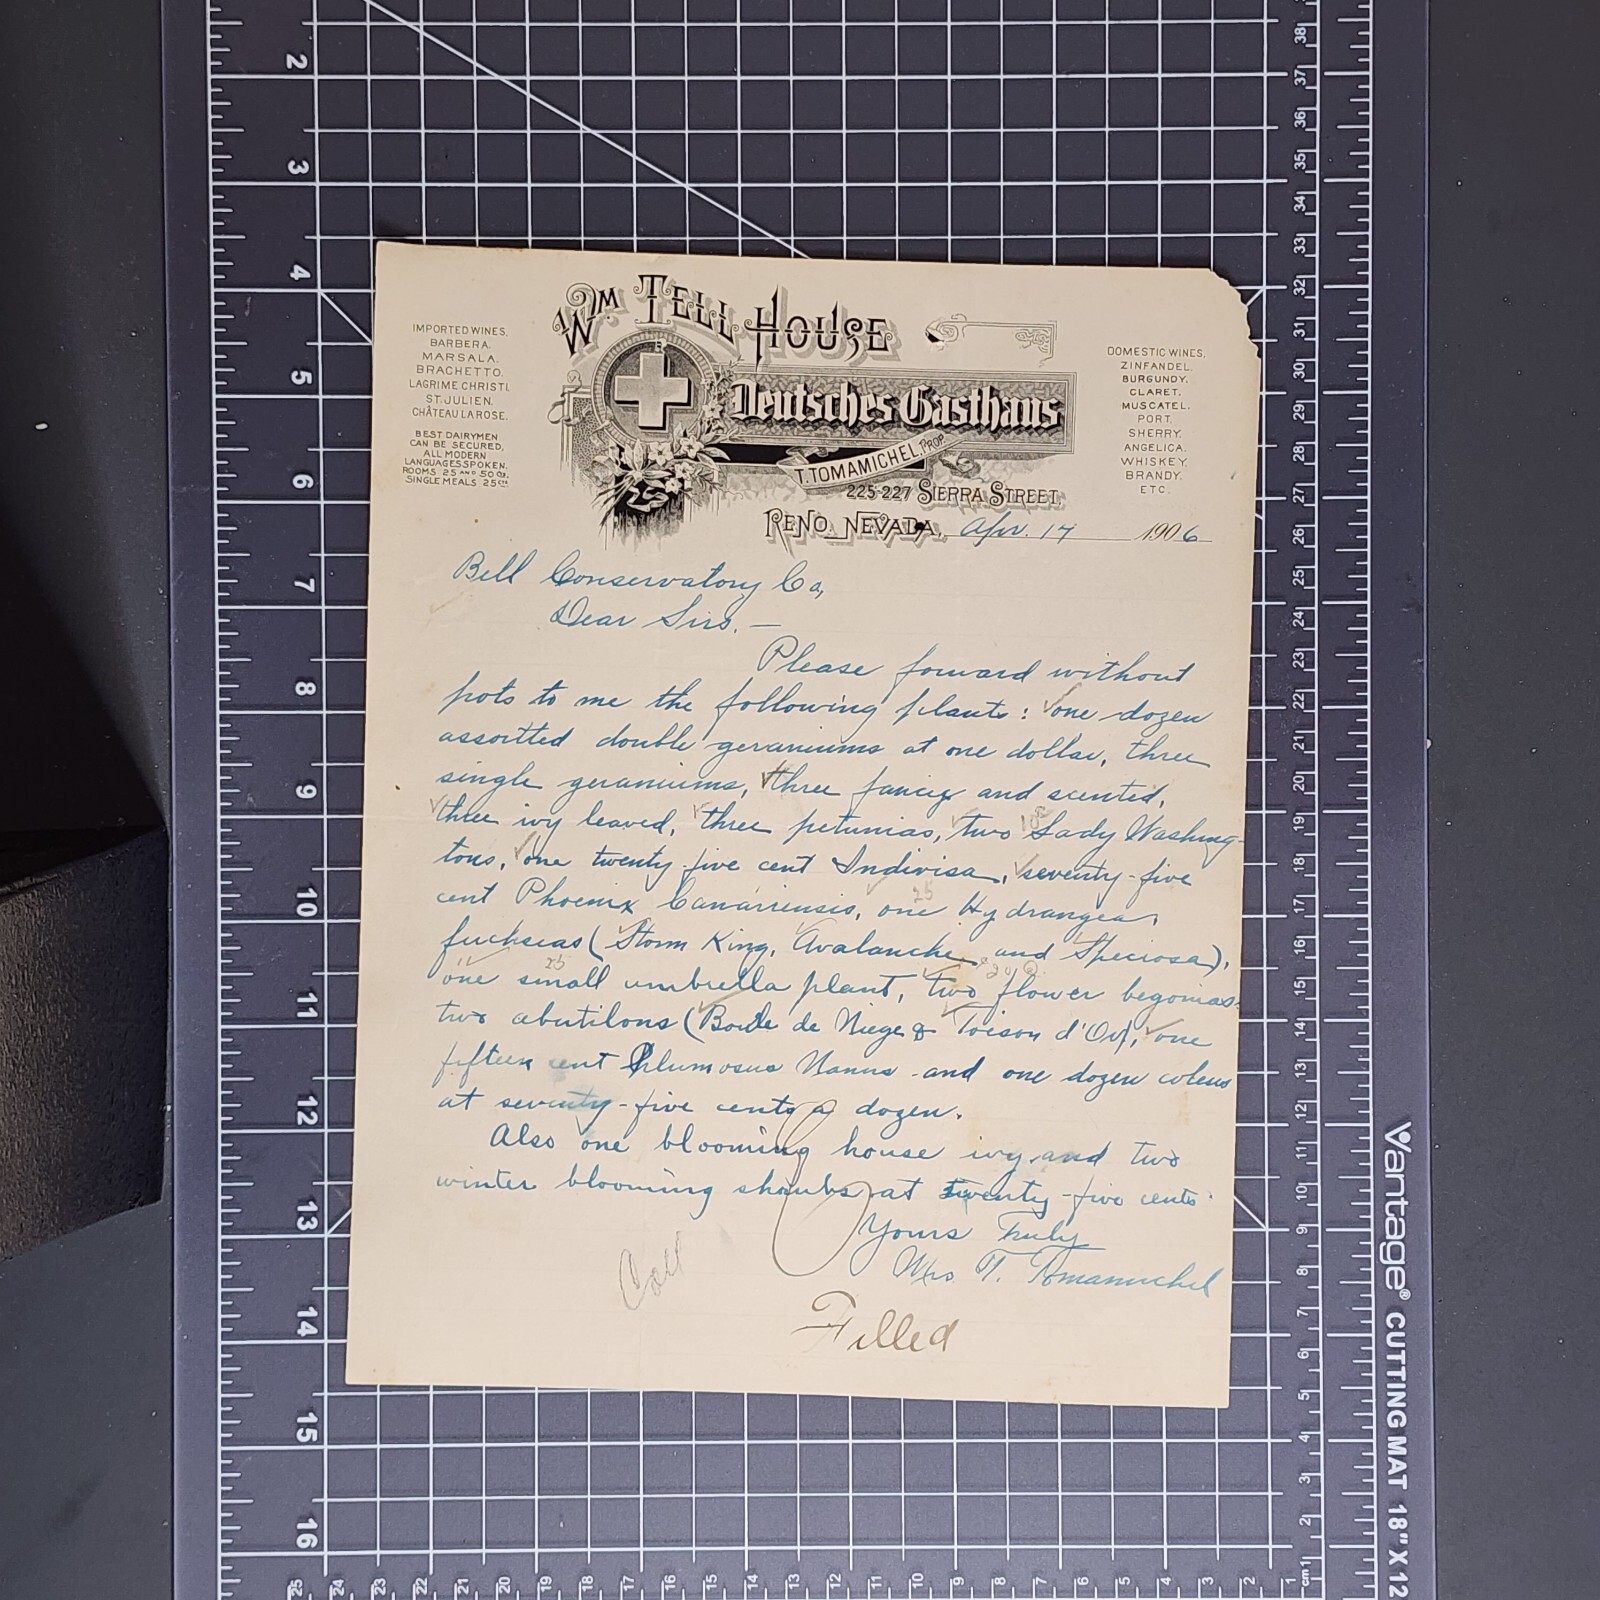 Wm Tell House
Deutsches Gasthaus
T. TOMAMICHEL, PROP.
225-227 SIERRA STREET,
RENO, NEVADA, Apr. 17 1906
IMPORTED WINES,
BARBERA.
MARSALA.
BRACHETTO.
LAGRIME CHRISTI.
ST. JULIEN.
CHÂTEAU LA ROSE.
BEST DAIRYMEN
CAN BE SECURED,
ALL MODERN
LANGUAGES SPOKEN.
ROOMS 25 AND 50 CTS.
SINGLE MEALS 25 CTS
DOMESTIC WINES,
ZINFANDEL.
BURGUNDY.
CLARET.
MUSCATEL.
PORT.
SHERRY.
ANGELICA.
WHISKEY.
BRANDY.
ETC.
Bell Conservatory Co,
Dear Sirs. —
Please forward without
pots to me the following plants: one dozen
assortted double geraniums at one dollar, three
single geraniums, three fancy and scented,
three ivy leaved, three petunias, two Lady Washing-
tons, one twenty five cent Indivisa, seventy-five
cent Phoenix Canariensis, one Hydrangea,
25
fuchseas (Storm King, Avalanche and Speciosa),
25
one small umbrella plant, two flower begonias
two abutilons (Boule de Niege & Toison d'Or), one
fifteen cent Plumosus Nanus and one dozen coleus
at seventy-five cents a dozen.
Also one blooming house ivy and two
winter blooming shrubs at twenty-five cents
Yours Truly
Mrs T. Tomamichel
Filled
2
3
4
5
6
7
8
9
10
11
12
13
14
15
16
38
37
36
35
34
33
32
31
30
29
28
27
26
25
24
23
22
21
20
19
18
17
16
15
14
13
12
11
10
9
8
7
6
5
4
3
2
cm 1
25 24 23 22 21 20 19 18 17 16 15 14 13 12 11 10 9 8 7 6 5 4 3 2 1
Vantage® CUTTING MAT 18" X 12